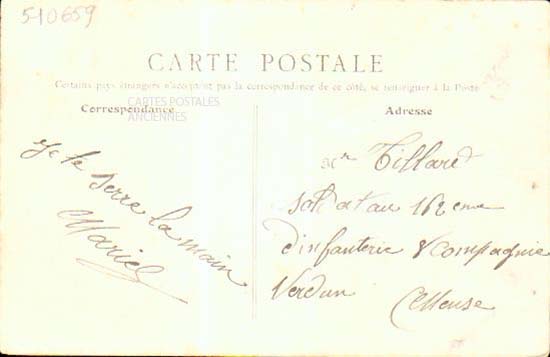 510659
CARTE POSTALE
Certains pays étrangers n'acceptent pas la correspondance de ce côté, se renseigner à la Poste
Correspondance
CARTES POSTALES
ANCIENNES
Je te serre la main
Marie
Adresse
Mr Tillard
soldat au 162eme
d'infanterie 8 compagnie
Verdun Meuse